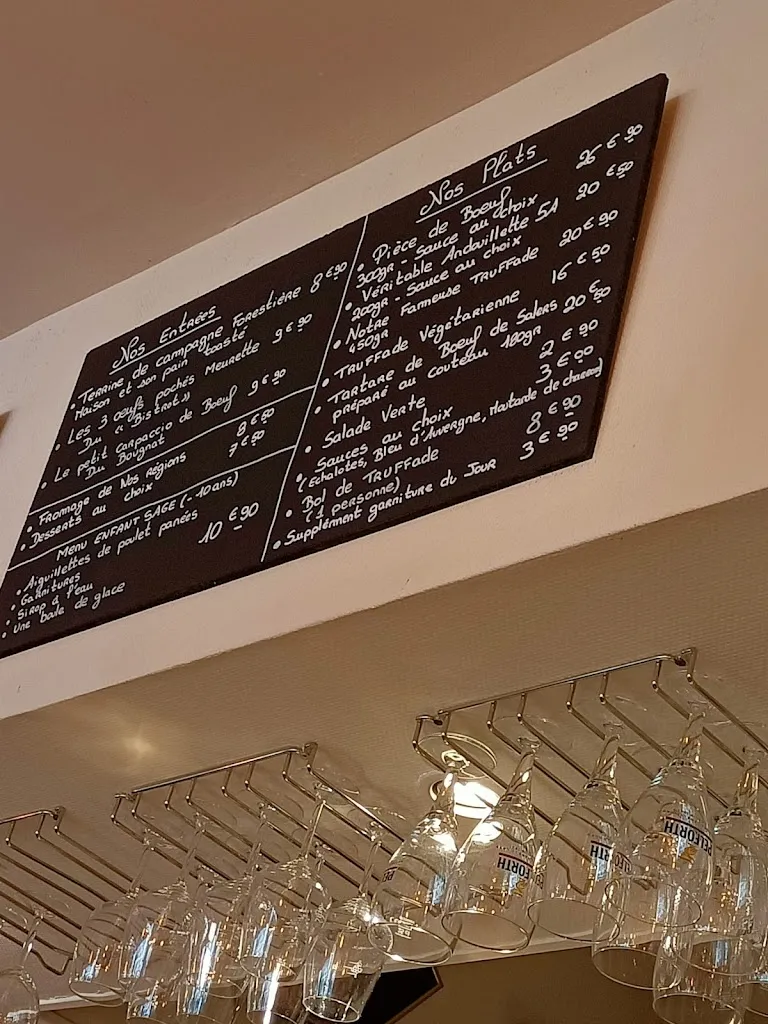 Nos Entrées
• Terrine de campagne Forestière 8€90
Maison et son pain toasté
• Les 3 œufs pochés Meurette 9€90
Du "Bistrot"
• Le petit Carpaccio de Boeuf 9€90
Du Bougnat
• Fromage de Nos Régions 8€50
• Desserts au choix 7€50
Menu ENFANT SAGE (-10ans)
• Aiguillettes de poulet panées 10€90
• Garnitures
• Sirop à l'eau
• Une boule de glace
Nos Plats
• Pièce de Boeuf 26€90
300gr - Sauce au choix
• Véritable Andouillette 5A 20€50
200gr - Sauce au choix
• Notre Fameuse Truffade 20€90
450gr
• Truffade Végétarienne 16€50
• Tartare de Boeuf de Salers 20€50
préparé au couteau 180gr
• Salade Verte 2€90
• Sauces au choix 3€00
(Echalotes, Bleu d'Auvergne, Moutarde de charroux)
• Bol de Truffade 8€90
(1 personne)
• Supplément garniture du Jour 3€90
PELFORTH
PELFORTH
PELFORTH
PELFORTH